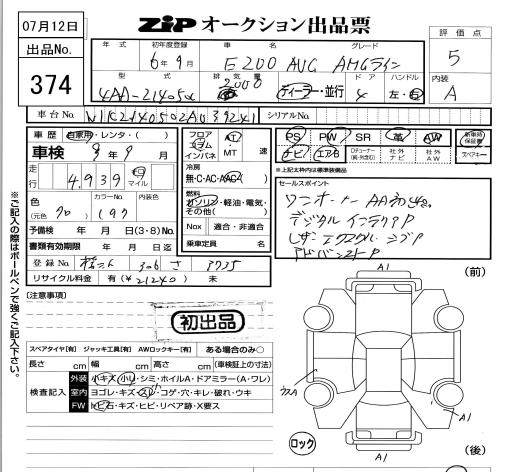 07月12日
ZIP オークション出品票
出品No.
374
年式 初年度登録 車名 グレード
6年9月 E200 AVG AMGライン
評価点
5
型式 排気量 ドア ハンドル
4AA-214050 2000 ディーラー・並行 4 左・右
内装
A
車台No. シリアルNo.
車歴 自家用・レンタ・( )
車検 9年9月
走行 4,939 km マイル
色 カラーNo. 内装色
(元色 クロ) (197)
予備検 年 月 日(3・8)No.
書類有効期限 年 月 日迄
登録No. 306 さ
リサイクル料金 有(¥21240) 未
フロア コラム インパネ AT・MT 速
冷房
無・C・AC・AAC・( )
燃料
ガソリン・軽油・電気・その他( )
Nox 適合・非適合
乗車定員 名
PS PW SR 革 AW 新車時保証書
ナビ エアB Dチューナー(純・外含む) 社外ナビ 社外AW スペアキー
※上記太枠内は標準装備品
セールスポイント
ワンオーナー AA初出品
デジタル インテリアP
レザーエクスクルーシブP
アドバンスドP
※ご記入の際はボールペンで強くご記入下さい。
[注意事項]
初出品
スペアタイヤ[有] ジャッキ工具[有] AWロックキー[有] ある場合のみ○
長さ cm 幅 cm 高さ cm (車検証上の寸法)
検査記入
外装 小キズ・小凹・シミ・ホイルA・ドアミラー(A・ワレ)
室内 ヨゴレ・キズ・スレ・コゲ・穴・キレ・破れ・ウキ
FW トビ石・キズ・ヒビ・リペア跡・X要ス
(前)
A1
ウスA
A1
ロック
A1
(後)